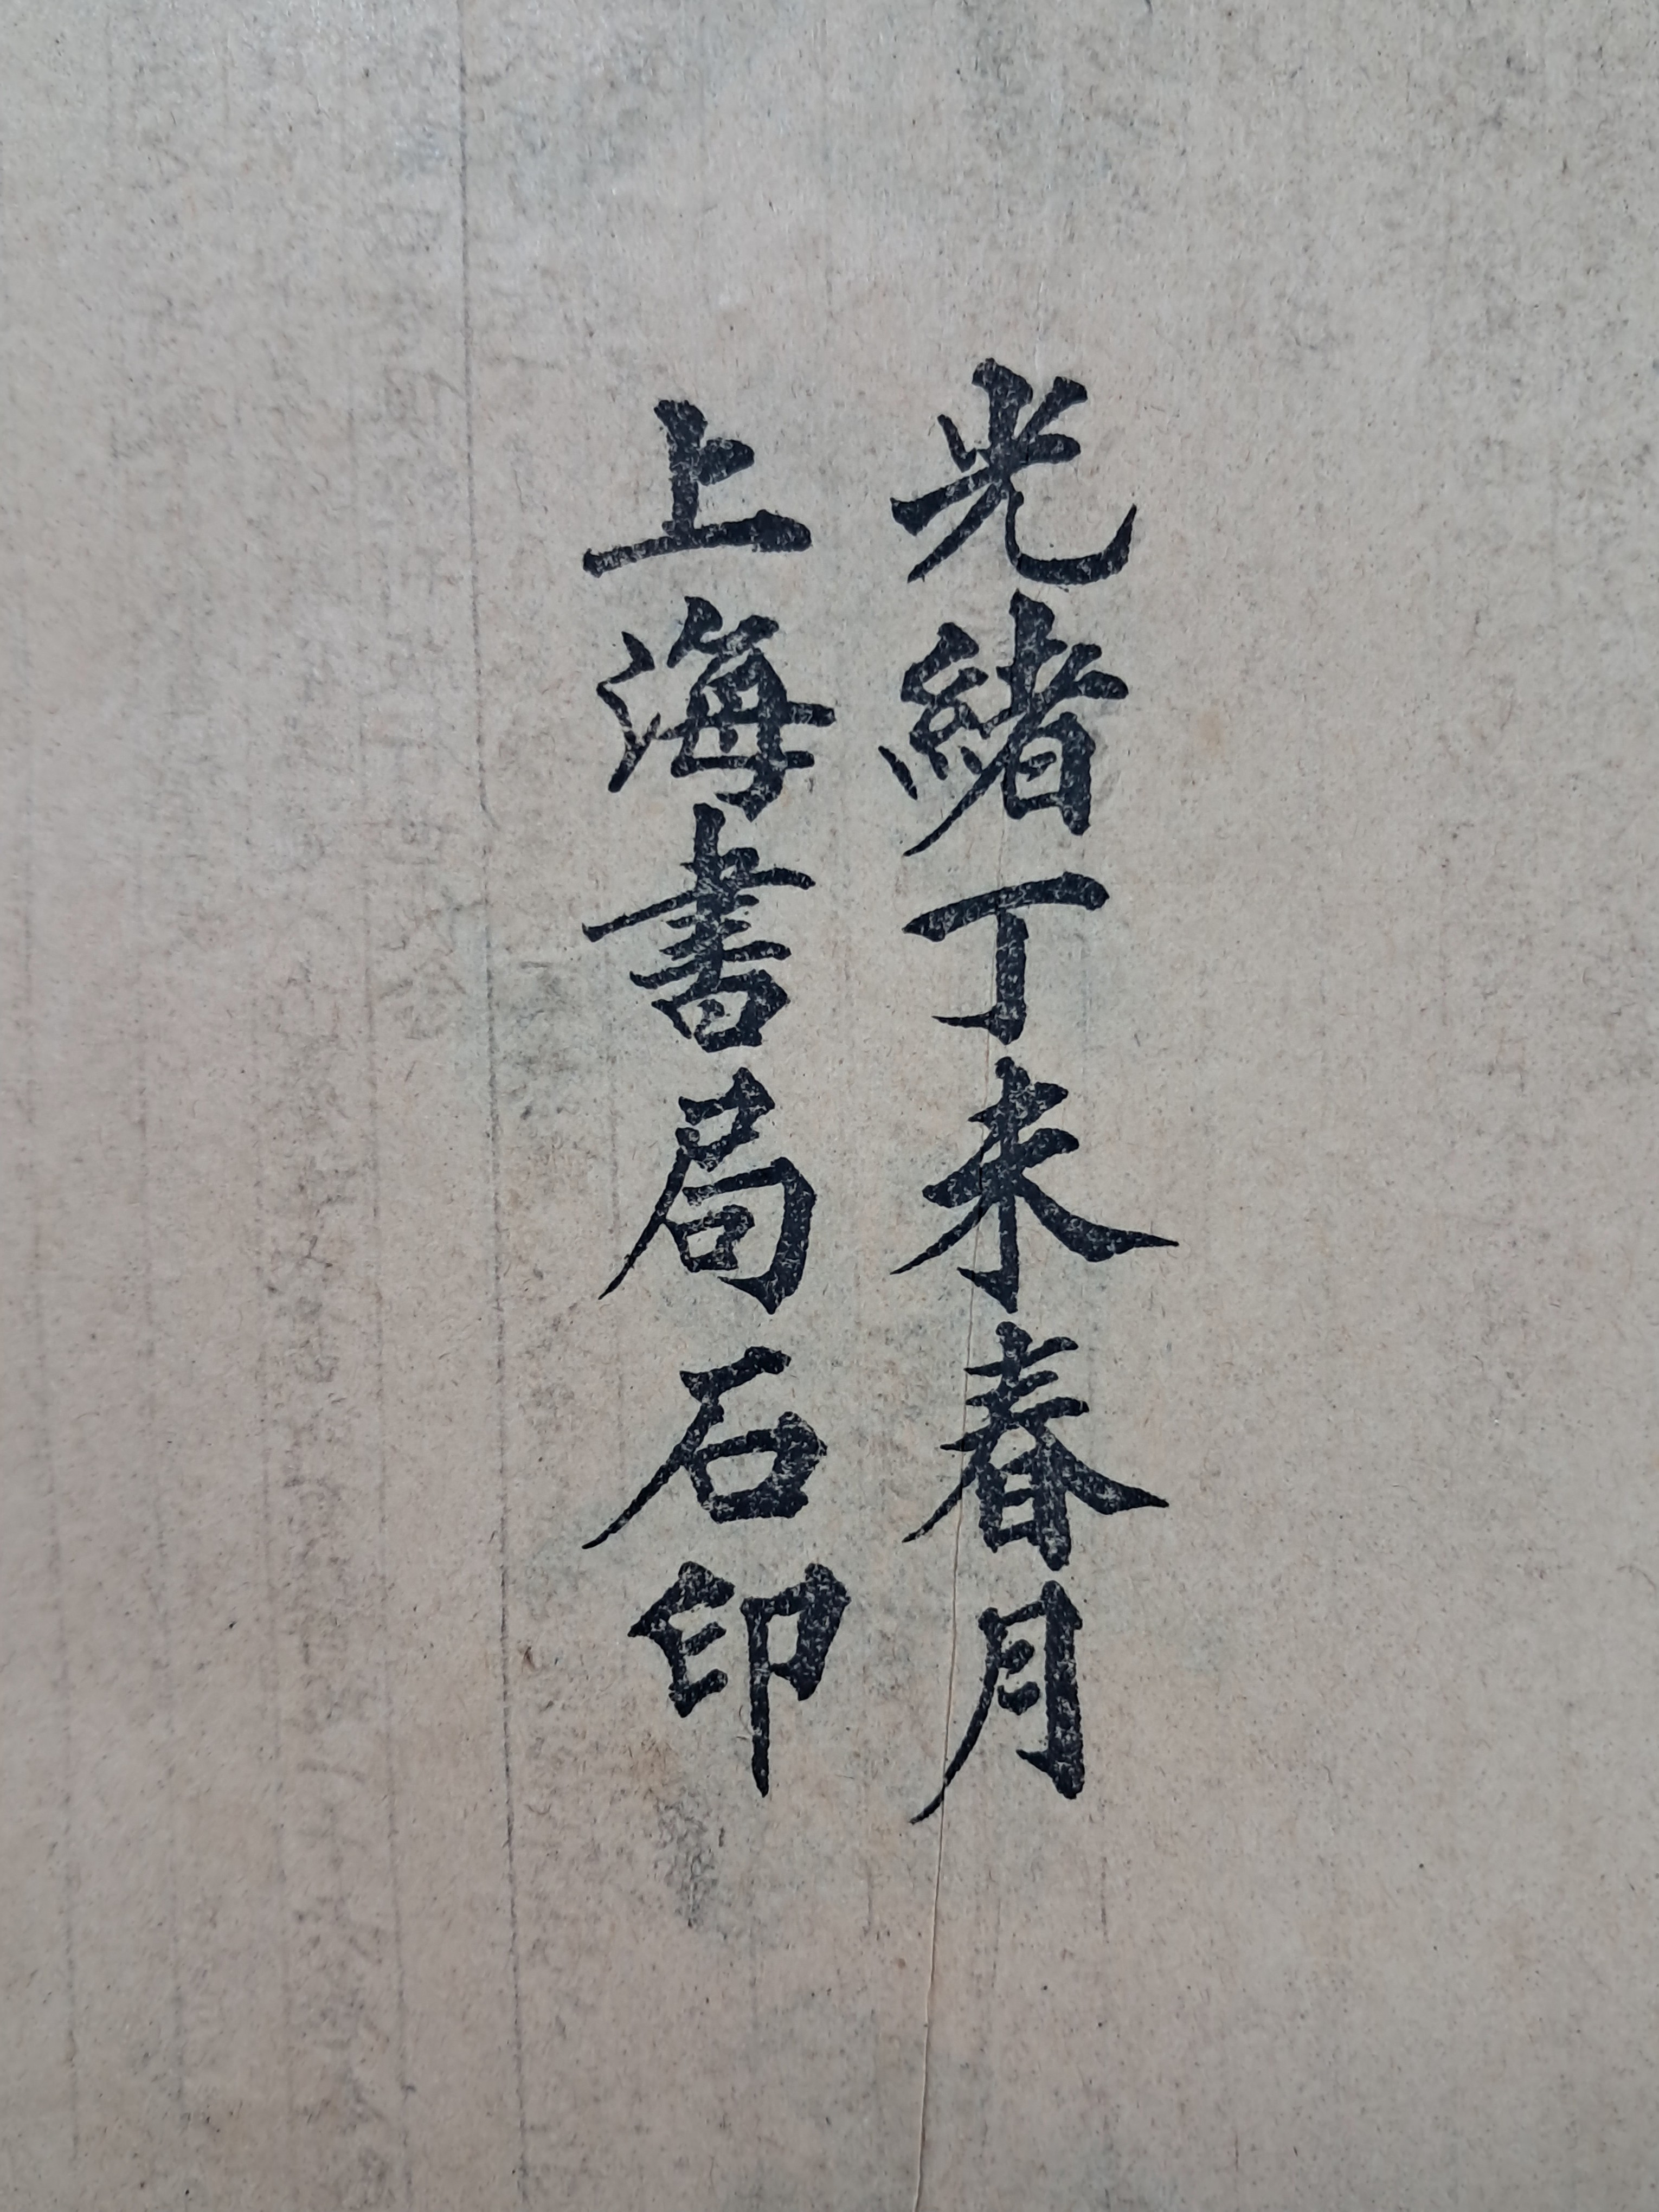 光緒丁未春月
上海書局石印